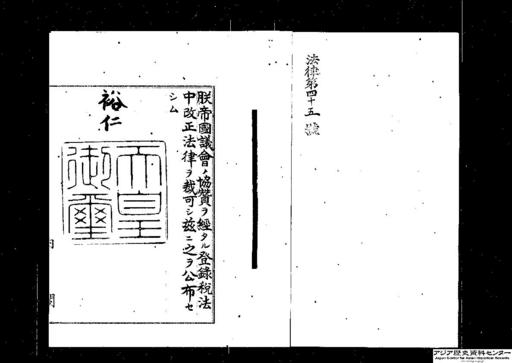 法律第四十五號
朕帝國議會ノ協贊ヲ經タル登錄稅法
中改正法律ヲ裁可シ茲ニ之ヲ公布セ
シム
裕仁
天皇
御璽
内閣
アジア歴史資料センター
Japan Center for Asian Historical Records